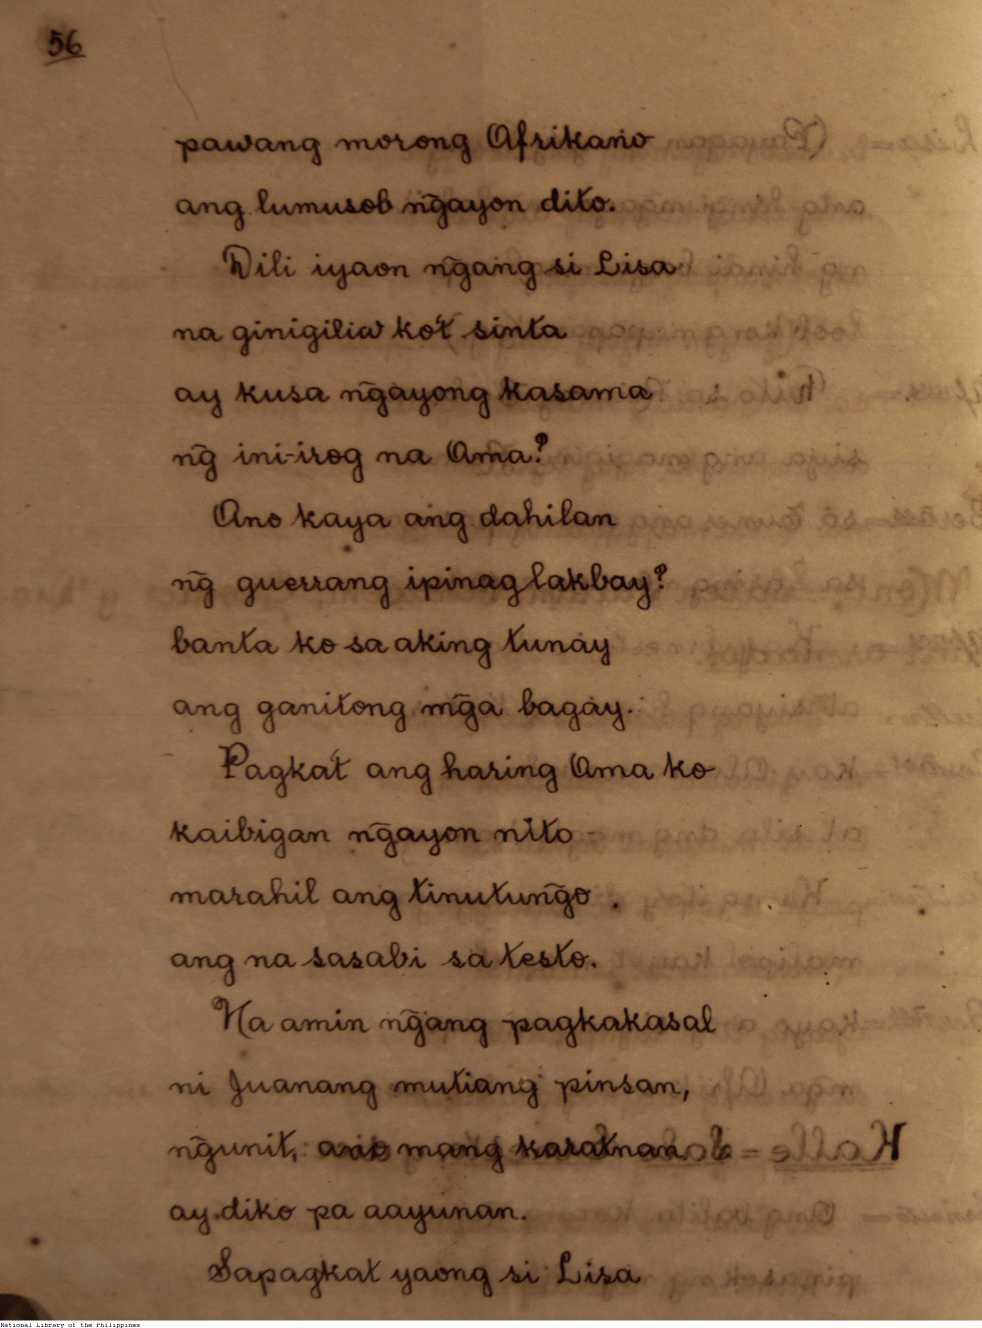 56
pawang morong Afrikano
ang lumusob n̄gayon dito.
Dili iyaon n̄gang si Lisa
na ginigiliw ko't sinta
ay kusa n̄gayong kasama
n̄g ini-irog na Ama?
Ano kaya ang dahilan
n̄g guerrang ipinaglakbay?
banta ko sa aking tunay
ang ganitong m̄ga bagay.
Pagka't ang haring Ama ko
kaibigan n̄gayon nito
marahil ang tinutun̄go.
ang na sasabi sa testo.
Na amin n̄gang pagkakasal
ni Juanang mutiang pinsan,
n̄gunit, ano mang karatnan
ay diko pa aayunan.
Sapagkat yaong si Lisa
National Library of the Philippines